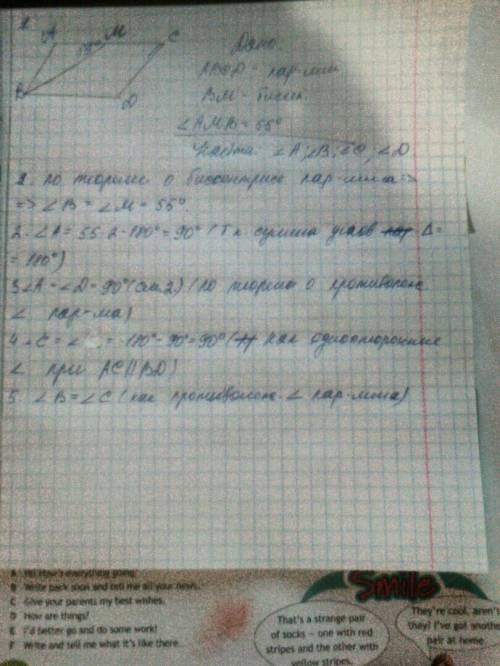 1.
A M C
55°
B D
Дано:
пар-мм
BM - бисек.
∠AMB = 55°
Найти: ∠A, ∠B, ∠C, ∠D
по теореме о биссектрисе пар-мма =>
=> ∠B = ∠M = 55°.
2. ∠A = 55·2-180° = 90° (Тк сумма углов Δ=
= 180°)
3 ∠A = ∠D = 90° (см.2) (по теореме о противополож
∠ пар-ма)
4. ∠C = ∠ = 180° - 90° = 90° (как односторонние
∠ при AC||BD)
5. ∠B = ∠C (как противополож. ∠ пар-мма)
A Hi! How's everything going?
B Write back soon and tell me all your news.
C Give your parents my best wishes.
D How are things?
E I'd better go and do some work!
F Write and tell me what it's like there.
Smile
That's a strange pair
of socks – one with red
stripes and the other with
yellow stripes.
They're cool, aren't
they? I've got another
pair at home.